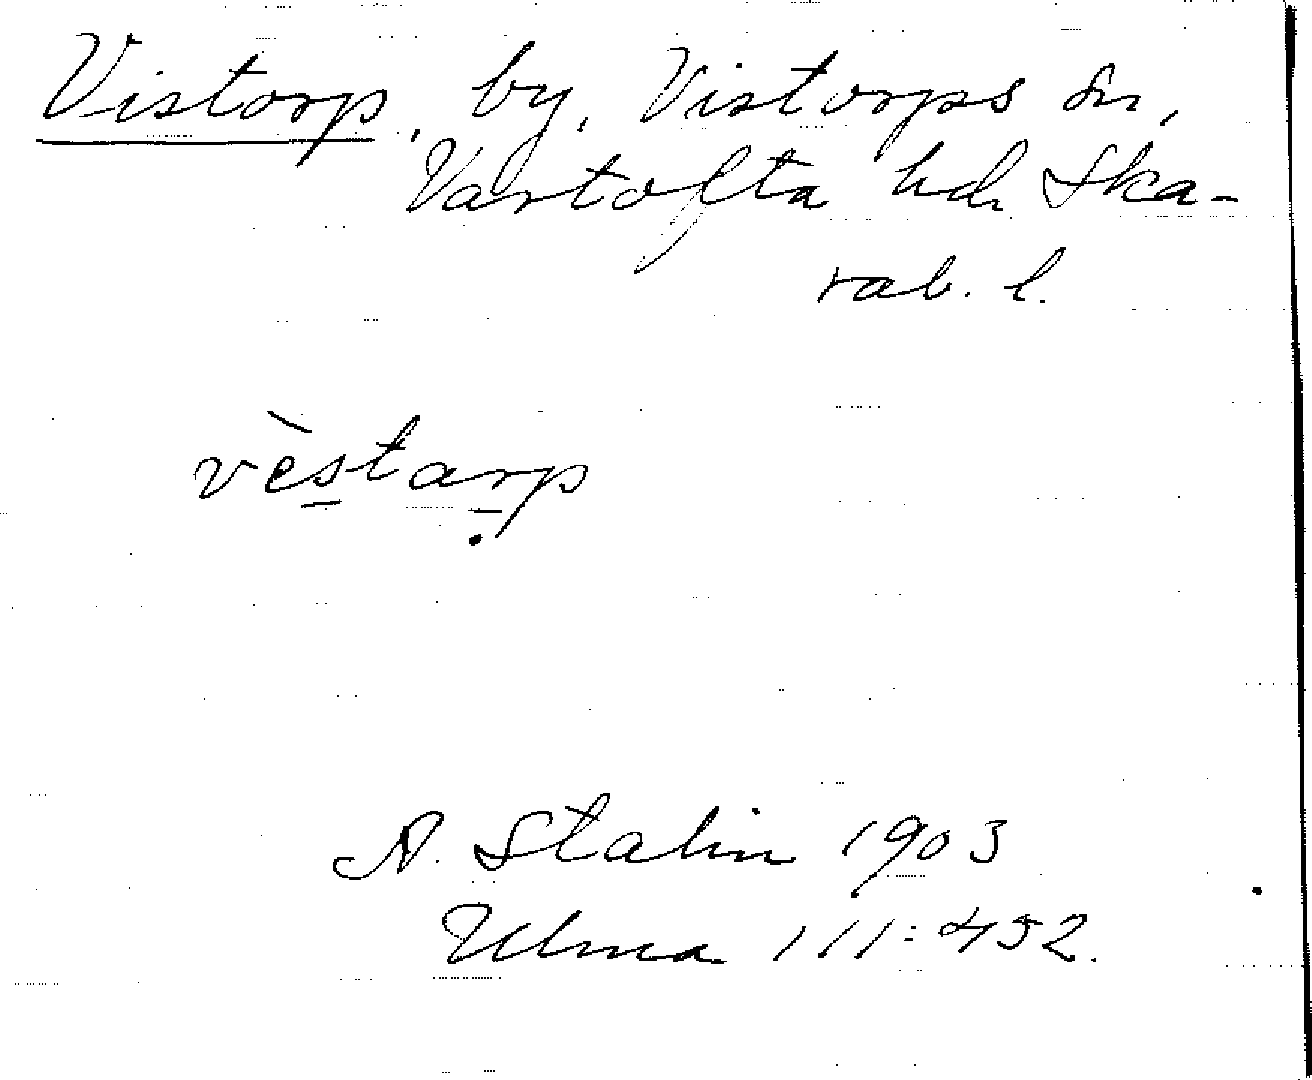 Vistorp, by, Vistorps sn,
Vartofta hd. Ska-
rab. l.
vèstarp
A. Stalin 1903
Ulma 111:452.